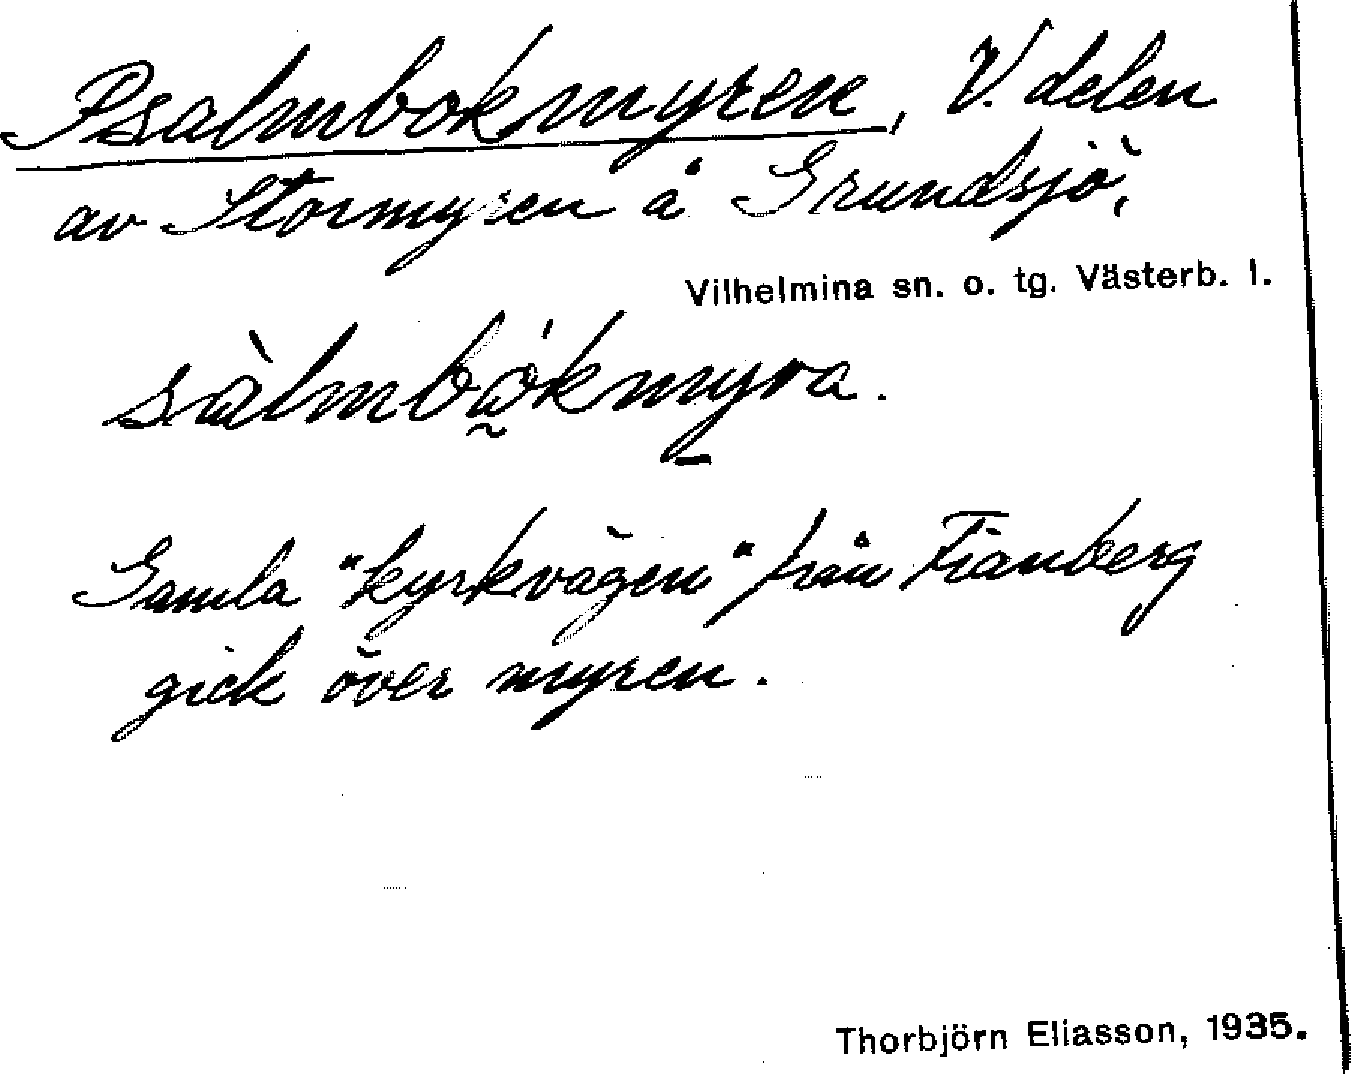 Psalmbokmyren, V. delen
av Stormyren å Grundsjö,
Vilhelmina sn. o. tg. Västerb. l.
sàlmbo̰̍kmyra.
Gamla "kyrkvägen" från Fianberg
gick över myren.
Thorbjörn Eliasson, 1935.